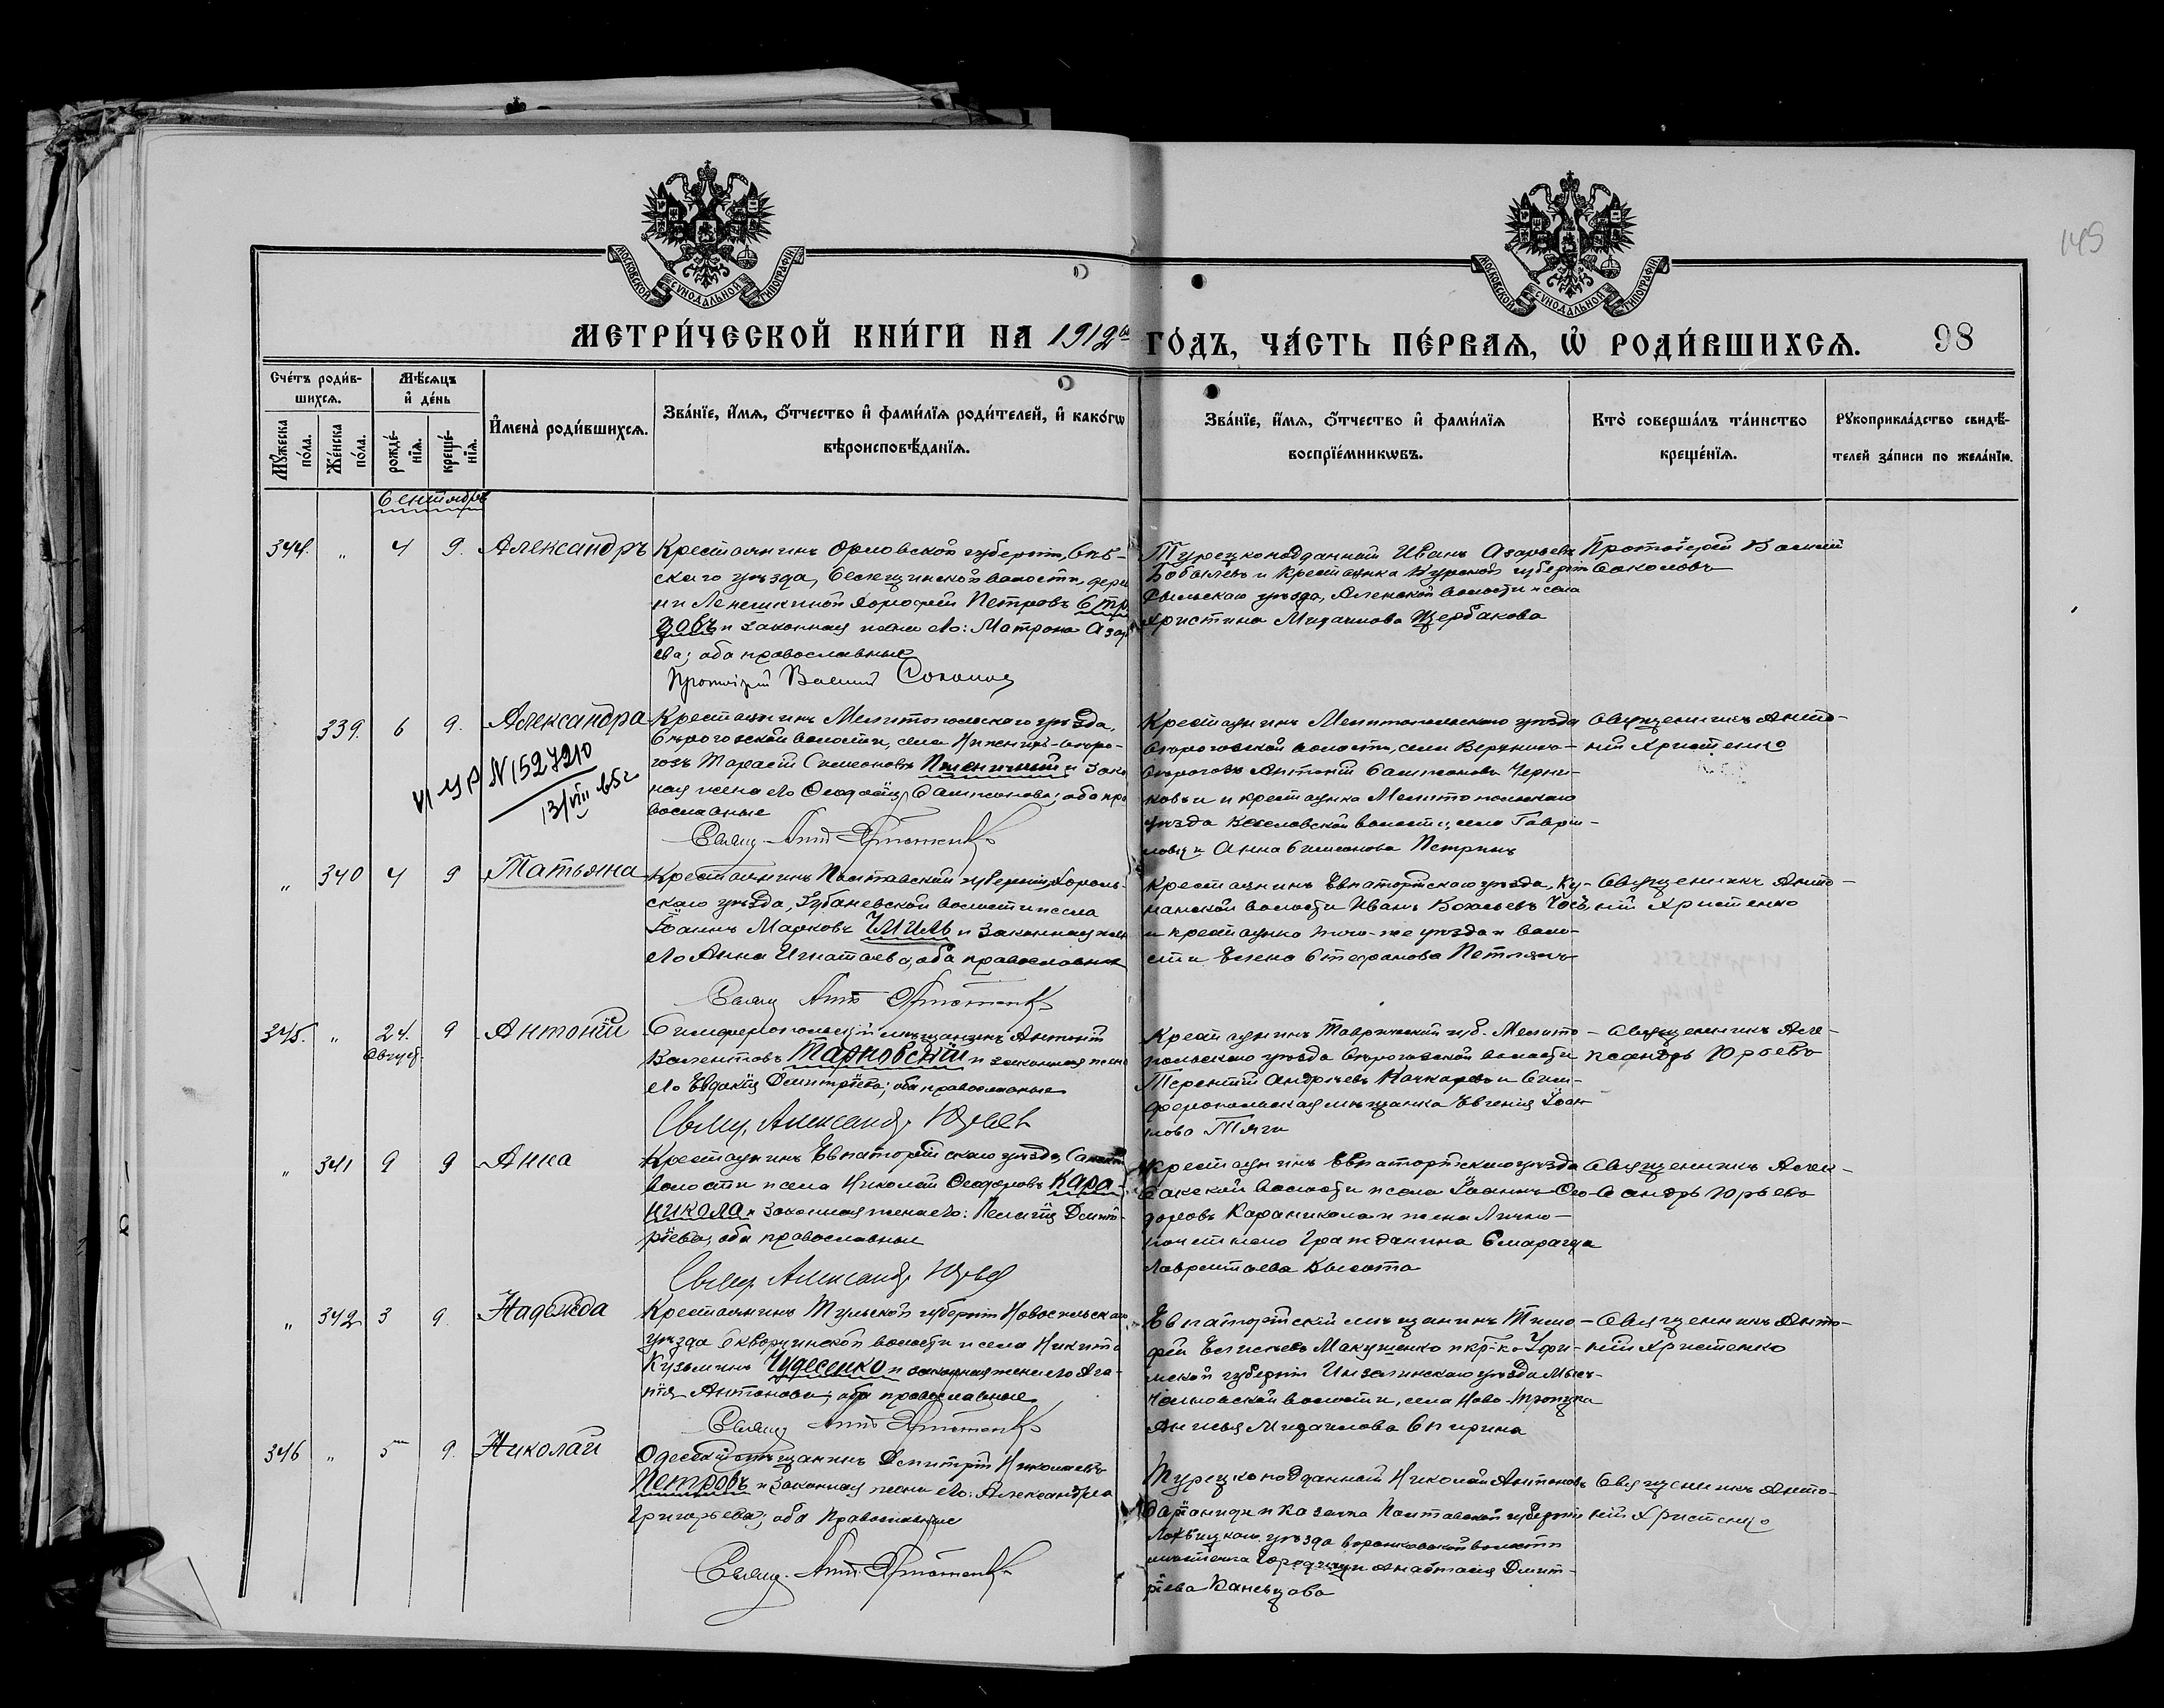 МОСКОВСКОЙ СѴНОДАЛЬНОЙ ТИПОГРАФІИ
МОСКОВСКОЙ СѴНОДАЛЬНОЙ ТИПОГРАФІИ
145
МЕТРИ́ЧЕСКОЙ КНИ́ГИ НА 1912й ГО́ДЪ, ЧА́СТЬ ПЕ́РВАЯ, Ѡ҆ РОДИ́ВШИХСЯ.
98
Сче́тъ роди́в-
шихся.
Мѣ́сяцъ
и҆ де́нь
Мꙋ́жеска по́ла.
Же́нска по́ла.
рожде́-
нїѧ.
креще́-
нїѧ.
И҆мена̀ роди́вшихся.
Зва́нїе, и҆́мя, ѻ҆́тчество и҆ фами́лїя роди́телей, и҆ како́гѡ
вѣроисповѣ́данїя.
Зва́нїе, и҆́мя, ѻ҆́тчество и҆ фами́лїя
воспрїе́мникѡвъ.
Кто̀ соверша́лъ та́инство
креще́нїя.
Рꙋкоприкла́дство свидѣ́-
телей за́писи по жела́нїю.
Сентябрь
344. " 4 9. Александръ
Крестьянинъ Орловской губерніи, Сѣв-
скаго уѣзда, волости, дерев
ни Петровъ
и законная жена его: Матрона Азар
ева; оба православные
Протоіерей Василій Соколов
Турецкоподданный Иванъ Азарьевъ
и Крестьянка Курской губерніи
Рыльскаго уѣзда, волости и села
Христина Михаилова Щербакова
Протоіерей Василій
Соколовъ
339. 6 9. Александра
VI ЯР N 1527210
13/VIII 65г
Крестьянинъ Мелитопольскаго уѣзда,
Сѣрогозской волости, села Нижнихъ-Сѣро-
гозъ Тарасій Симеоновъ Пшеничный и закон
ная жена его Сампсонова; оба пра
вославные
Свящ. Ант. Христенко
Крестьянинъ Мелитопольскаго уѣзда
Сѣрогозской волости, села Верхнихъ-
Сѣрогозъ Антоній Сампсоновъ Черни-
ковъ и крестьянка Мелитопольскаго
уѣзда волости, села Гаври-
ловки Анна Симеонова
Священникъ Анто-
ній Христенко
" 340 4 9 Татьяна
Крестьянинъ Полтавской губерніи Хороль-
скаго уѣзда, волости и села
Іоаннъ Марковъ Чмиль и законная жена
его Анна Игнатьева, оба православные
Свящ Ант Христенко
Крестьянинъ Евпаторійскаго уѣзда, Ку-
манской волости Иванъ
и крестьянка того-же уѣзда и воло-
сти Елена Стефанова
Священникъ Анто-
ній Христенко
345. " 24. 9 Антоній
Август.
Симферопольскій мѣщанинъ Антоній
Валентовъ Тарновскій и законная жена
его Евдокія Димитріева; оба православные
Свящ. Александр Юрьев
Крестьянинъ Таврической губ. Мелито-
польскаго уѣзда Сѣрогозской волости
Терентій Андреевъ и Сим-
феропольская мѣщанка Евгенія Іоан
нова
Священникъ Але-
ксандръ Юрьевъ
" 341 9 9 Анна
Крестьянинъ Евпаторійскаго уѣзда, Сакской
волости и села Николай Ѳеодоровъ Кара-
никола и законная жена его: Пелагія Димит-
ріева, оба православные
Свящ. Александр Юрьев
Крестьянинъ Евпаторійскаго уѣзда
Сакской волости и села Іоаннъ Ѳео-
доровъ Караникола и жена Лично-
почетнаго Гражданина Смарагда
Лаврентьева Высота
Священникъ Алек-
сандръ Юрьевъ
" 342 3 9. Надежда
Крестьянинъ Тульской губерніи Новосильскаго
уѣзда волости и села Никита
Кузьминъ Чудесенко и законная жена его Ага-
пія Антонова; оба православные
Свящ Ант Христенко
Евпаторійскій мѣщанинъ Тимо-
фей Макушенко и кр-ка Уфи-
мской губерніи уѣзда
волости, села Ново-Троицка
Анисья Михаилова Спирина
Священникъ Анто-
ній Христенко
346 " 5 9. Николай
Одесскій мѣщанинъ Димитрій Николаевъ
Петровъ и законная жена его: Александра
Григорьева; оба православные
Свящ. Ант. Христенко
Турецкоподданный Николай Антоновъ
и казачка Полтавской губерніи
Лохвицкаго уѣзда волости
мѣстечка Городищи Анастасія Димит-
ріева
Священникъ Анто-
ній Христенко